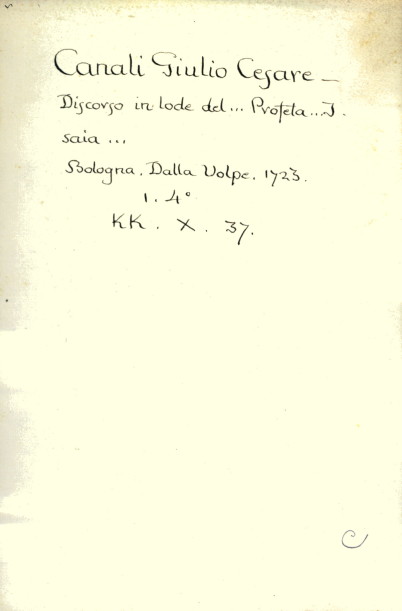 Canali Giulio Cesare –
Discorso in lode del... Profeta... I.
saia ...
Bologna. Dalla Volpe. 1723.
1. 4°
KK. X. 37.
C